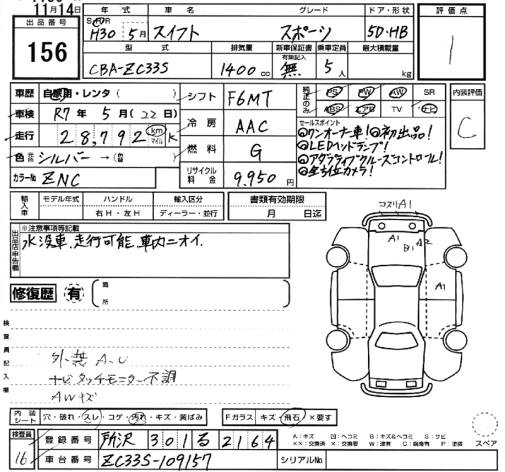 11月14日
出品番号 156
年式 H30 5月
車名 スイフト
グレード スポーツ
ドア・形状 5D・HB
評価点 1
型式 CBA-ZC33S
排気量 1400 cc
新車保証書 有無記入 無
乗車定員 5人
最大積載量 kg
車歴 自家用・レンタ( )
車検 R7年 5月(22日)
走行 28,792 km マイル K
色 シルバー →( )
カラーNo ZNC
シフト F6MT
冷房 AAC
燃料 G
リサイクル料金 9,950 円
純正のみ PS PW AW SR
ABS エアB TV ナビ
セールスポイント
◎ワンオーナー車!◎初出品!
◎LEDヘッドランプ!
◎アダプティブクルーズコントロール!
◎全方位カメラ!
内装評価 C
輸入車 モデル年式 ハンドル 右H・左H 輸入区分 ディーラー・並行
書類有効期限 月 日迄
出品店申告欄 ※注意事項等記載
水没車、走行可能、車内ニオイ.
修復歴 有 箇所
コスリA1
A1 B1 A2
A1
検査員記入欄
外装 A・U
ナビタッチモニター不調
AWキズ
内装シート 穴・破れ・スレ・コゲ・汚れ・キズ・黄ばみ
Fガラス キズ・飛石・×要す
検査員 16
登録番号 所沢 301 る 2164
車台番号 ZC33S-109157
シリアルNo
A:キズ U:ヘコミ B:キズ&ヘコミ S:サビ
××:交換済 ×:要交換 W:波有 C:腐食有 P:塗装
スペア